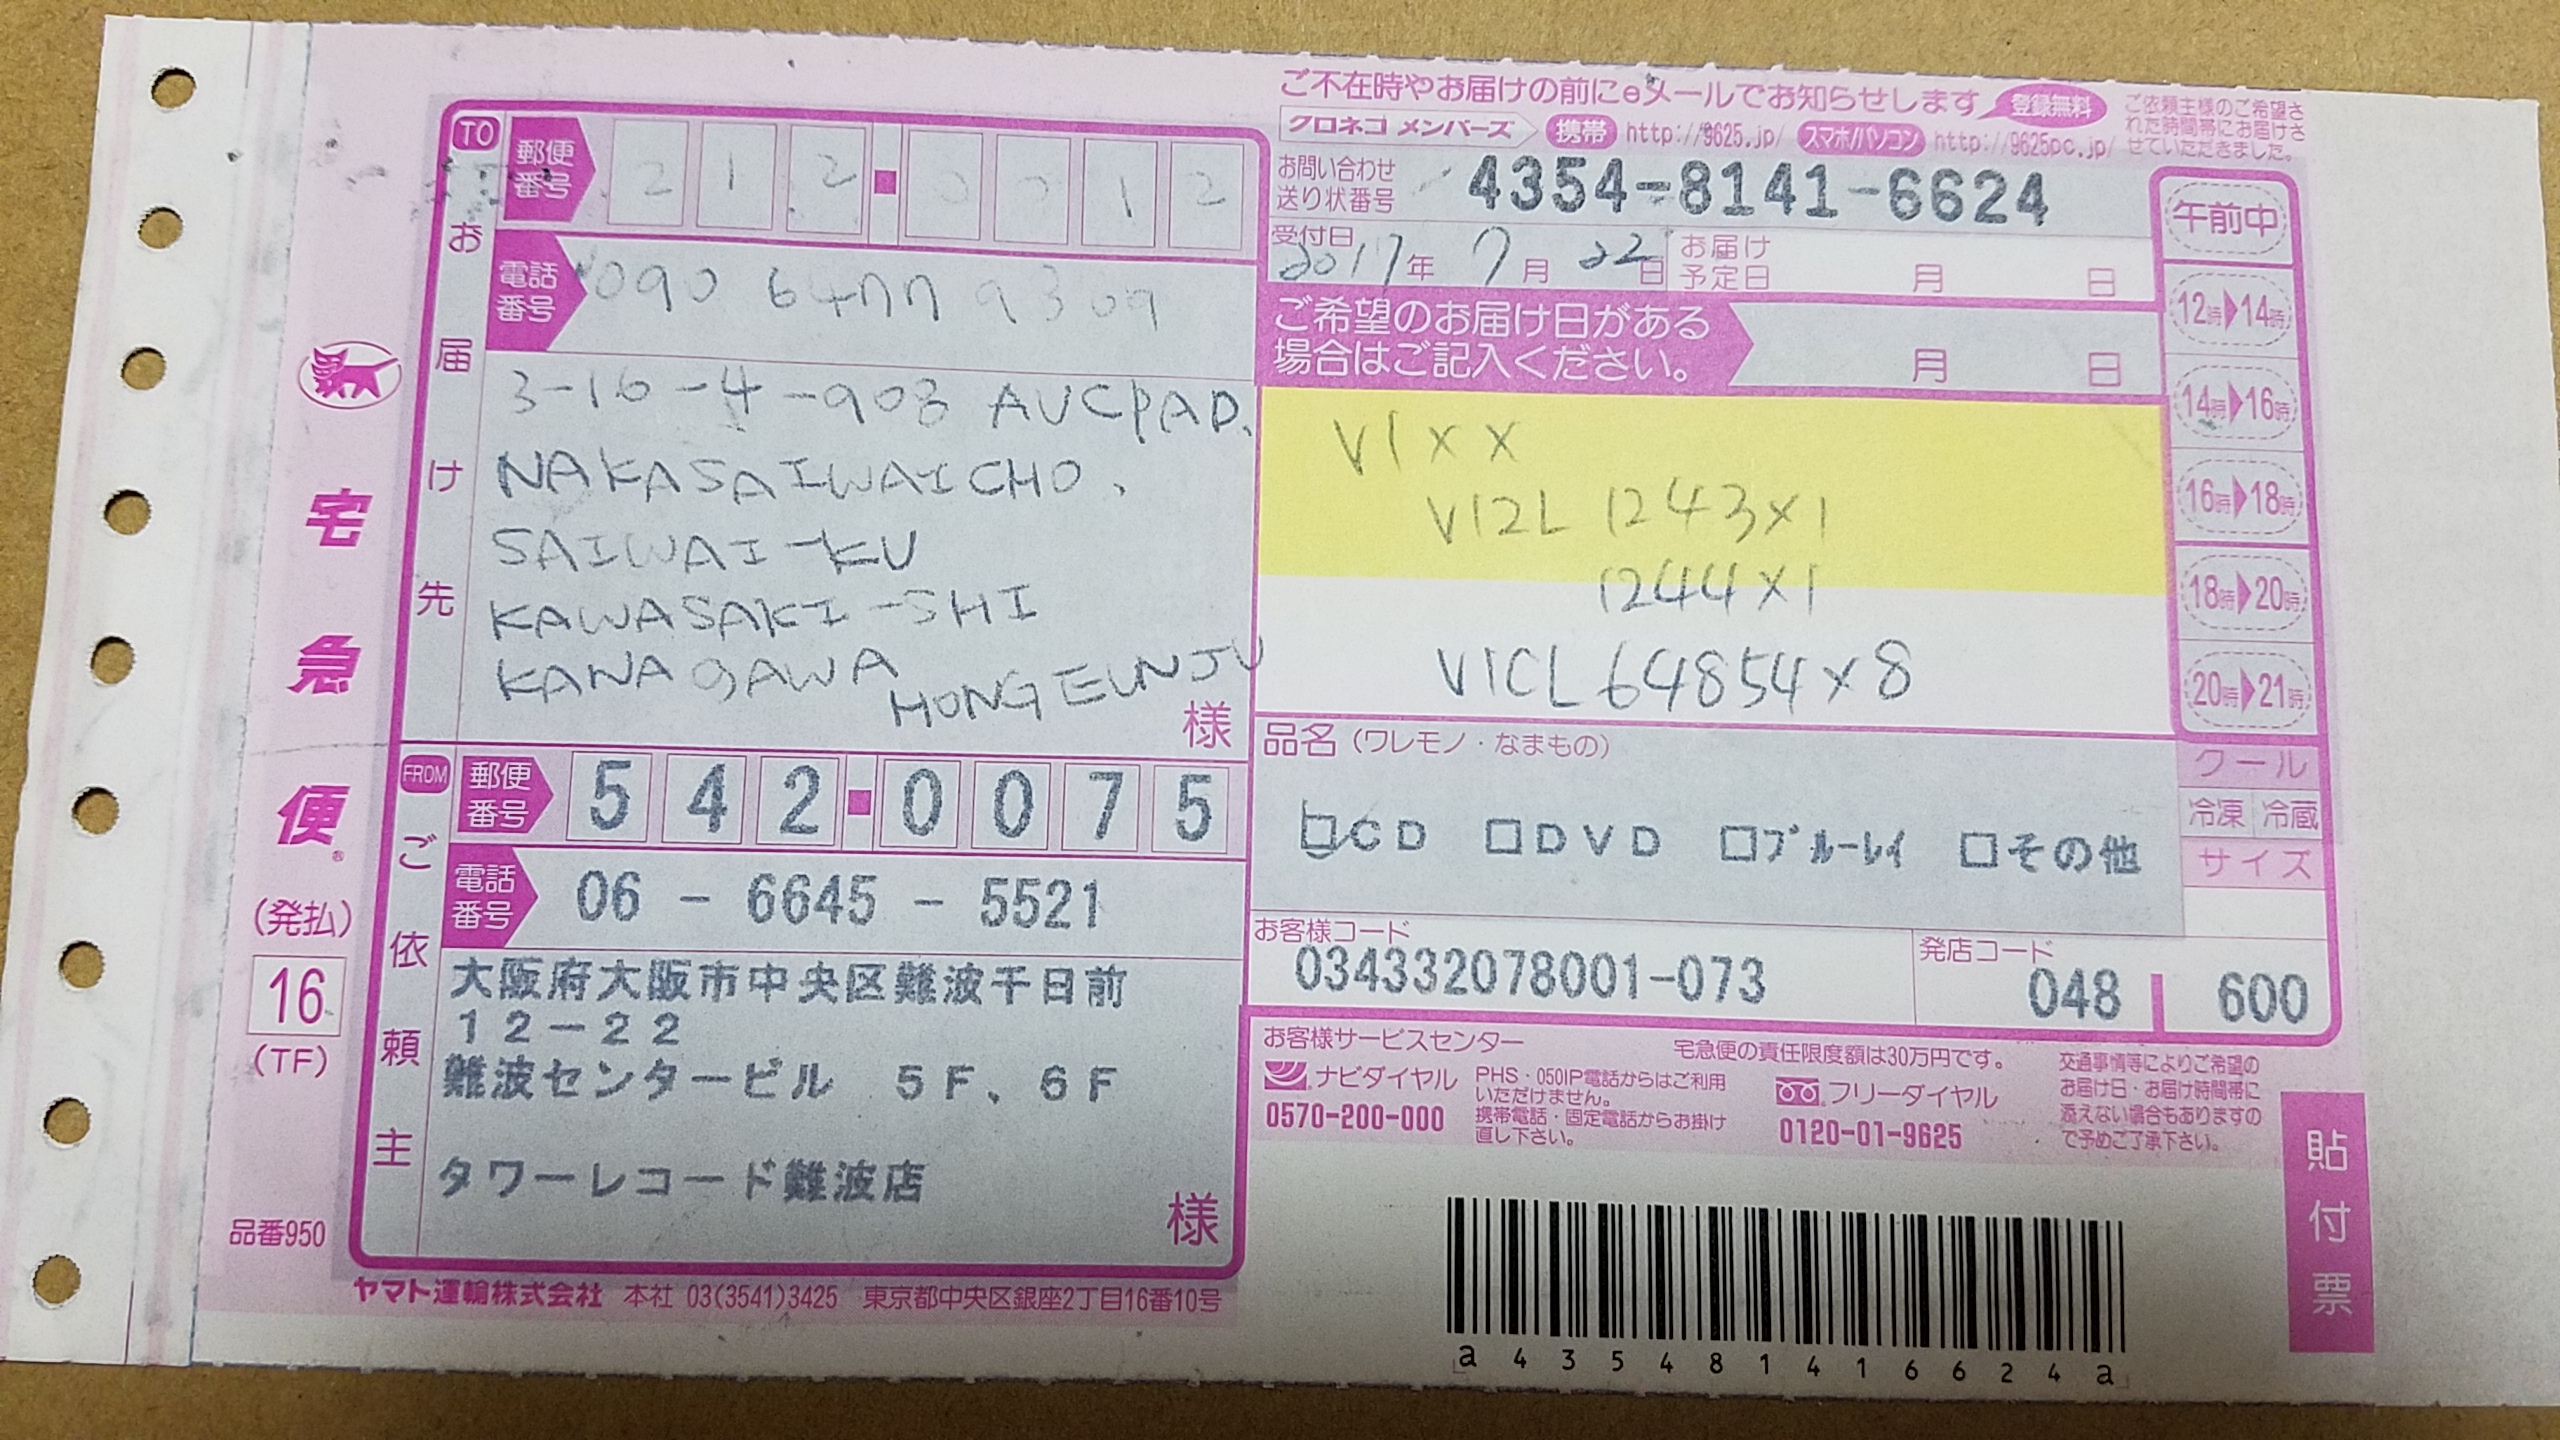 TO
お届け先
郵便番号
212-0012
電話番号
090 6477 9309
3-16-4-903 AUCPAD.
NAKASAIWAICHO.
SAIWAI-KU
KAWASAKI-SHI
KANAGAWA
HONGEUNJU
様
FROM
ご依頼主
郵便番号
542-0075
電話番号
06-6645-5521
大阪府大阪市中央区難波千日前
12-22
難波センタービル 5F、6F
タワーレコード難波店
様
宅急便®
(発払)
16
(TF)
品番950
ヤマト運輸株式会社 本社 03(3541)3425 東京都中央区銀座2丁目16番10号
ご不在時やお届けの前にeメールでお知らせします 登録無料
クロネコ メンバーズ 携帯 http://9625.jp/ スマホ/パソコン http://9625pc.jp/
ご依頼主様のご希望さ
れた時間帯にお届けさ
せていただきました。
お問い合わせ
送り状番号
4354-8141-6624
受付日
2017年 7月 22日
お届け
予定日
月 日
ご希望のお届け日がある
場合はご記入ください。
月 日
V1××
V12L 1243×1
1244×1
VICL 64854×8
午前中
12時▶14時
14時▶16時
16時▶18時
18時▶20時
20時▶21時
クール
冷凍 冷蔵
サイズ
品名(ワレモノ・なまもの)
□CD □DVD □ブルーレイ □その他
お客様コード
034332078001-073
発店コード
048 600
お客様サービスセンター
宅急便の責任限度額は30万円です。
ナビダイヤル
0570-200-000
PHS・050IP電話からはご利用
いただけません。
携帯電話・固定電話からお掛け
直し下さい。
フリーダイヤル
0120-01-9625
交通事情等によりご希望の
お届け日・お届け時間帯に
添えない場合もありますの
で予めご了承下さい。
貼付票
a435481416624a